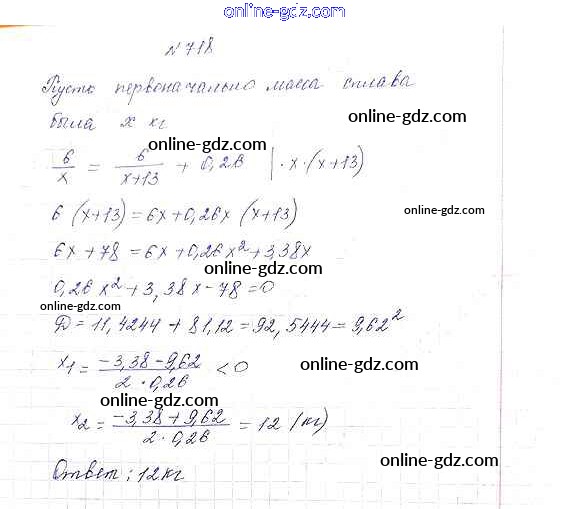 online-gdz.com
№718
Пусть первоначально масса сплава
была x кг
online-gdz.com
6/x = 6/(x+13) + 0,26 | · x · (x+13)
online-gdz.com
6 (x+13) = 6x + 0,26x (x+13)
online-gdz.com
6x + 78 = 6x + 0,26x² + 3,38x
online-gdz.com
0,26x² + 3,38x - 78 = 0
online-gdz.com
Д = 11,4244 + 81,12 = 92,5444 = 9,62²
online-gdz.com
x₁ = (-3,38 - 9,62)/(2 · 0,26) < 0
online-gdz.com
x₂ = (-3,38 + 9,62)/(2 · 0,26) = 12 (кг)
online-gdz.com
Ответ: 12 кг
online-gdz.com